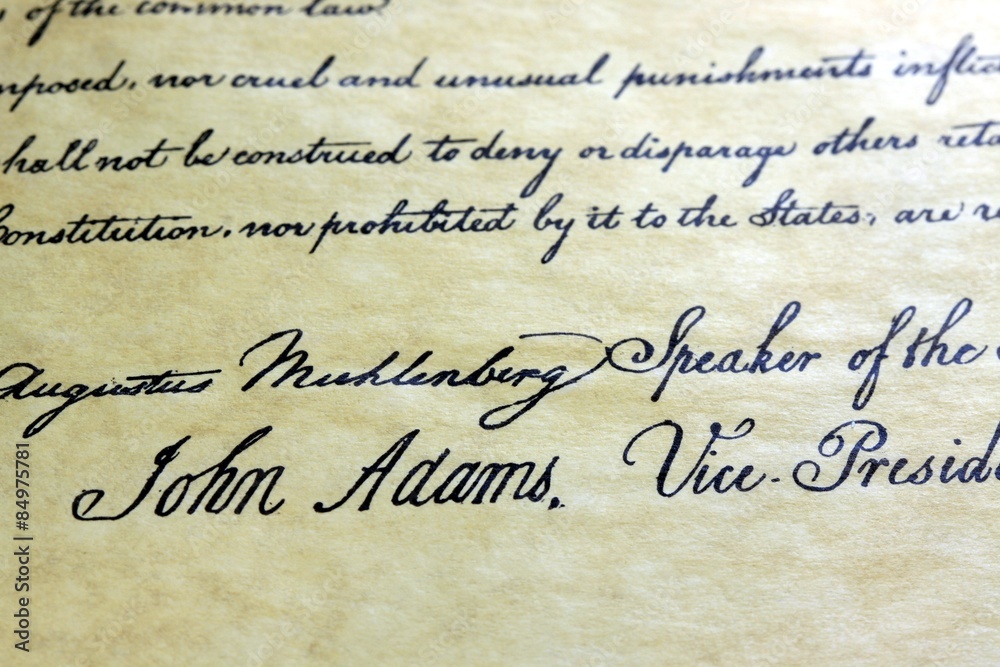 s of the common law
mposed, nor cruel and unusual punishments inflic
hall not be construed to deny or disparage others reta
Constitution, nor prohibited by it to the States, are r
Augustus Muhlenberg Speaker of the
John Adams, Vice-Preside
Adobe Stock | #84975781